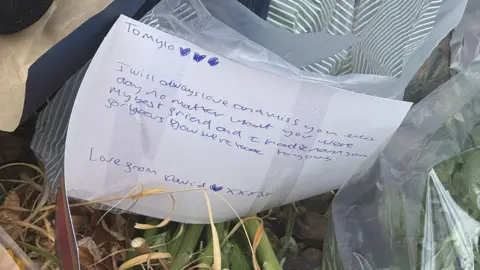 To Mylo 💙💙💙
I will always love and miss you every
day no matter what you were
My best friend and I had known you
for years you were
Love from David 💙 xxxxx